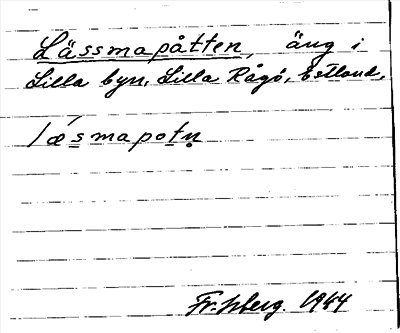 Lässmapåtten, äng i
Lilla byn, Lilla Rågö, Estland.
lǽsmapotn̥
1944